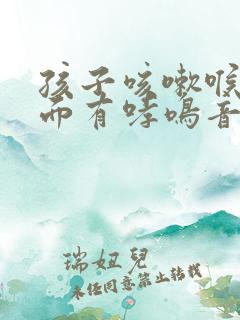 孩子咳嗽喉
而有哮鸣音
瑞妞兒
未经同意禁止转载